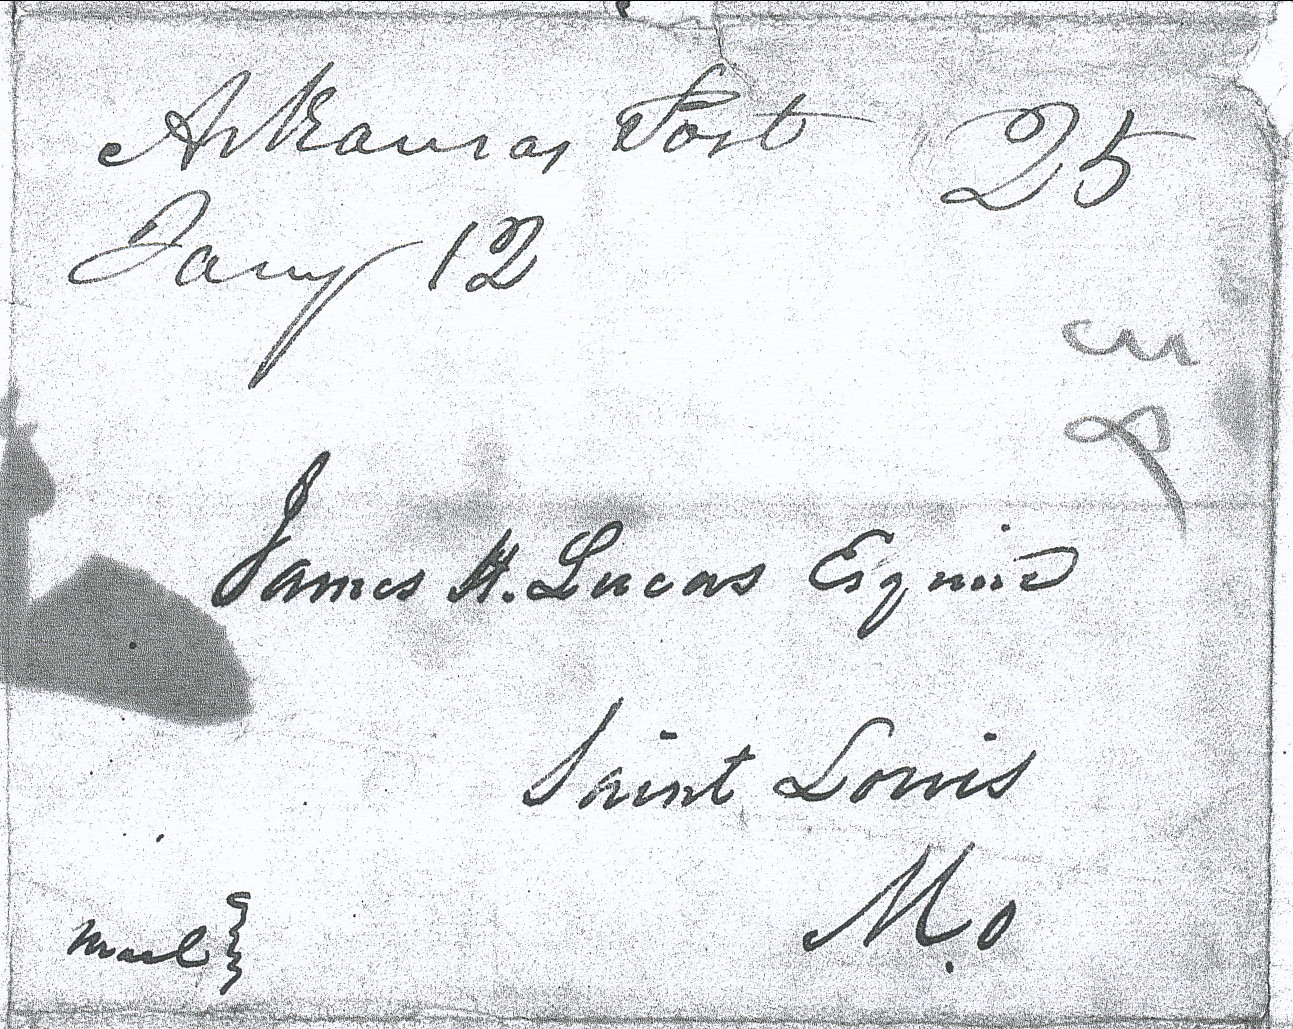 Arkansas Post 25
Jany 12
James H. Lucas Esquire
Saint Louis
Mo
Mail